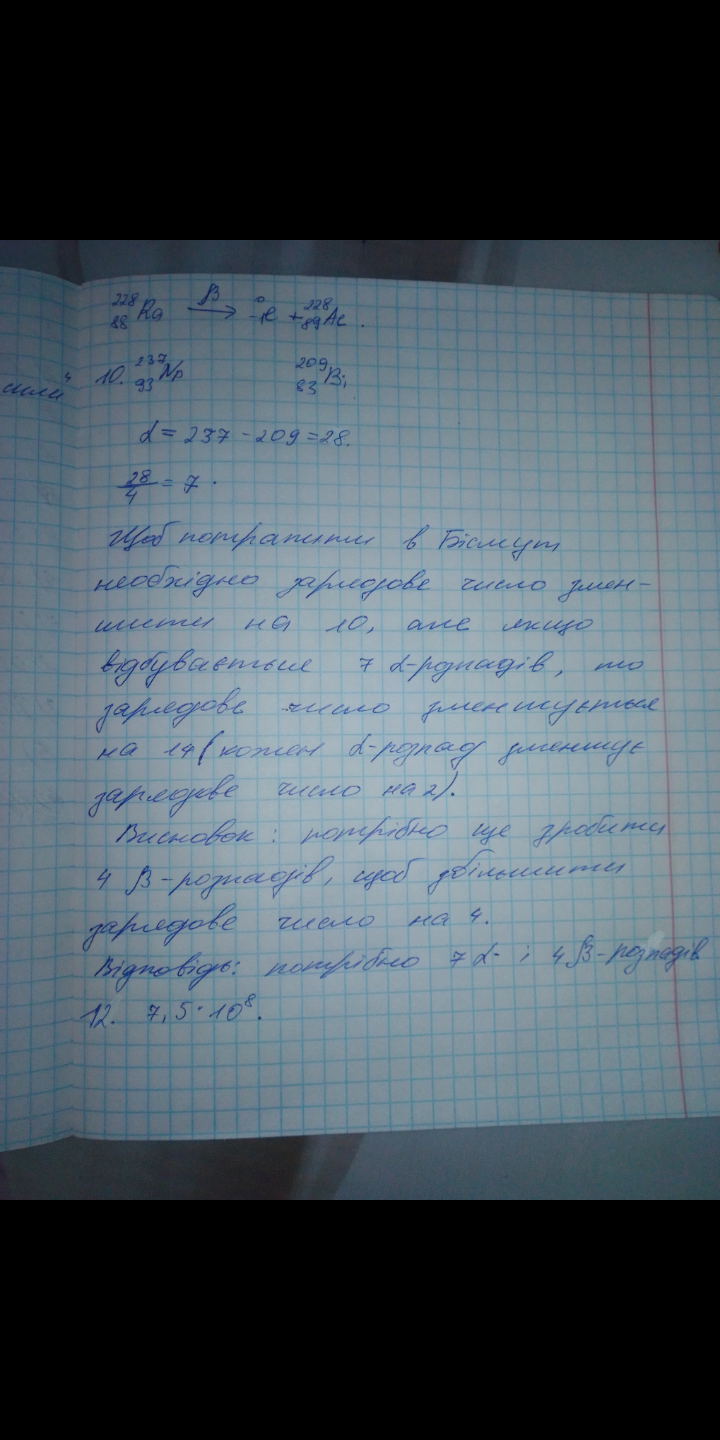 ²²⁸₈₈Ra —β→ ⁰₋₁e + ²²⁸₈₉Ac.
сили"
10. ²³⁷₉₃Np ²⁰⁹₈₃Bi
α = 237 - 209 = 28.
28/4 = 7.
Щоб потрапити в Бісмут
необхідно зарядове число змен-
шити на 10, але якщо
відбувається 7 α-рдпадів, то
зарядове число зменшується
на 14 (кожен α-розпад зменшує
зарядове число на 2).
Висновок: потрібно ще зробити
4 β-розпадів, щоб збільшити
зарядове число на 4.
Відповідь: потрібно 7 α- і 4 β-розпадів
12. 7,5·10⁸.